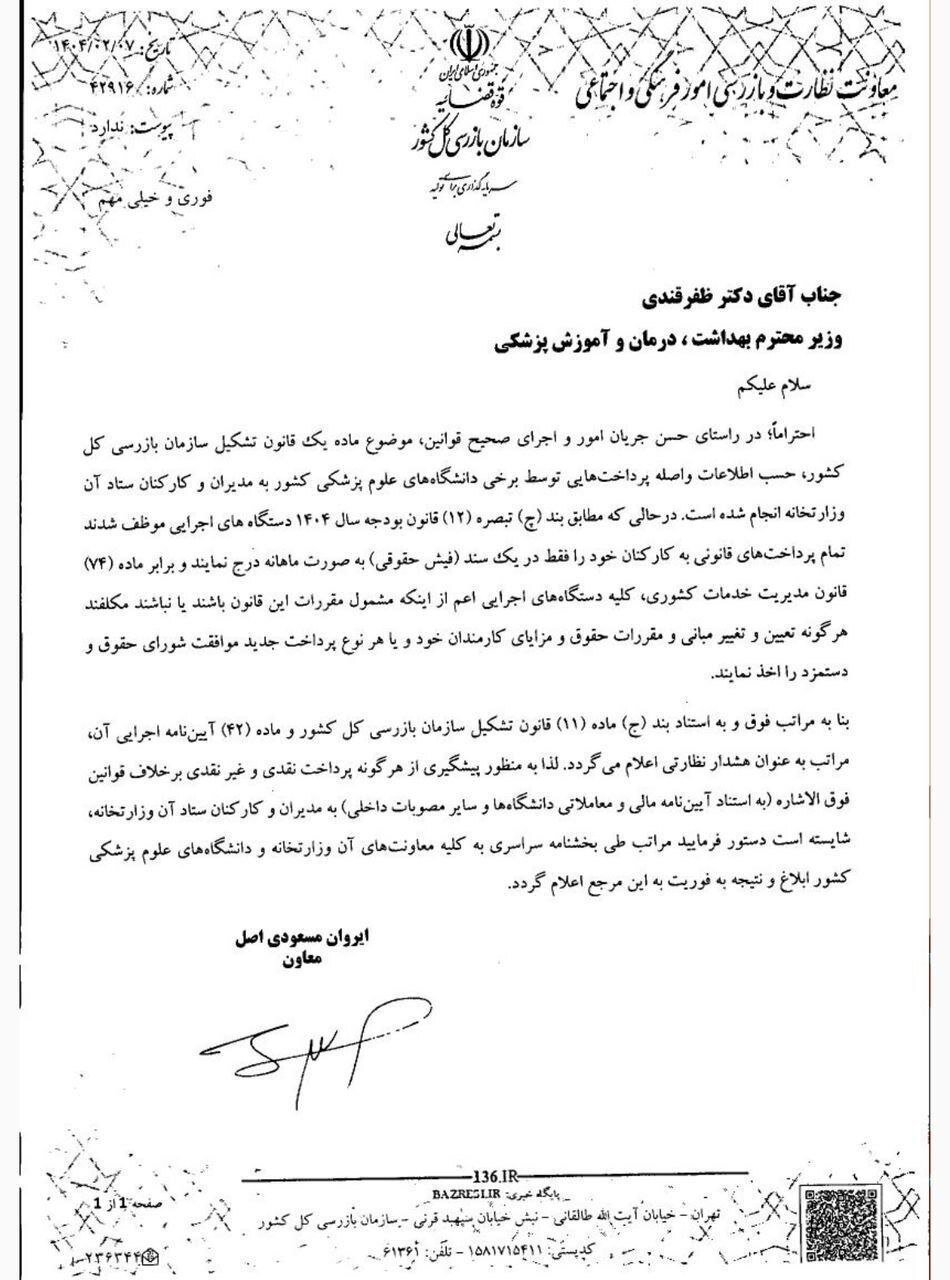 معاونت نظارت و بازرسی امور فرهنگی و اجتماعی
جمهوری اسلامی ایران
قوه قضائیه
سازمان بازرسی کل کشور
سرمایه‌گذاری برای تولید
بسمه تعالی
تاریخ: ۱۴۰۴/۰۲/۰۷
شماره: ۴۲۹۱۶
پیوست: ندارد
فوری و خیلی مهم
جناب آقای دکتر ظفرقندی
وزیر محترم بهداشت ، درمان و آموزش پزشکی
سلام علیکم
احتراماً؛ در راستای حسن جریان امور و اجرای صحیح قوانین، موضوع ماده یک قانون تشکیل سازمان بازرسی کل
کشور، حسب اطلاعات واصله پرداخت‌هایی توسط برخی دانشگاه‌های علوم پزشکی کشور به مدیران و کارکنان ستاد آن
وزارتخانه انجام شده است. درحالی که مطابق بند (چ) تبصره (۱۲) قانون بودجه سال ۱۴۰۴ دستگاه های اجرایی موظف شدند
تمام پرداخت‌های قانونی به کارکنان خود را فقط در یک سند (فیش حقوقی) به صورت ماهانه درج نمایند و برابر ماده (۷۴)
قانون مدیریت خدمات کشوری، کلیه دستگاه‌های اجرایی اعم از اینکه مشمول مقررات این قانون باشند یا نباشند مکلفند
هرگونه تعیین و تغییر مبانی و مقررات حقوق و مزایای کارمندان خود و یا هر نوع پرداخت جدید موافقت شورای حقوق و
دستمزد را اخذ نمایند.
بنا به مراتب فوق و به استناد بند (ج) ماده (۱۱) قانون تشکیل سازمان بازرسی کل کشور و ماده (۴۲) آیین‌نامه اجرایی آن،
مراتب به عنوان هشدار نظارتی اعلام می‌گردد. لذا به منظور پیشگیری از هرگونه پرداخت نقدی و غیر نقدی برخلاف قوانین
فوق الاشاره (به استناد آیین‌نامه مالی و معاملاتی دانشگاه‌ها و سایر مصوبات داخلی) به مدیران و کارکنان ستاد آن وزارتخانه،
شایسته است دستور فرمایید مراتب طی بخشنامه سراسری به کلیه معاونت‌های آن وزارتخانه و دانشگاه‌های علوم پزشکی
کشور ابلاغ و نتیجه به فوریت به این مرجع اعلام گردد.
ایروان مسعودی اصل
معاون
136.IR
پایگاه خبری: BAZRESI.IR
تهران - خیابان آیت الله طالقانی - نبش خیابان سپهبد قرنی - سازمان بازرسی کل کشور
کدپستی: ۱۵۸۱۷۱۵۴۱۱ - تلفن: ۶۱۳۶۱
صفحه 1 از 1
۲۳۶۳۴۴